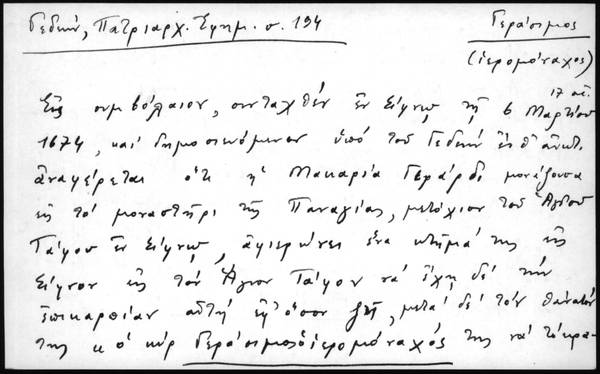 Γεδεών, Πατριαρχ. Εφημ. σ. 194
Γεράσιμος
(ιερομόναχος)
17 αἰ.
Εἰς συμβόλαιον, συνταχθέν ἐν Σίφνῳ τῇ 6 Μαρτίου
1674, καί δημοσιευόμενον ὑπό τοῦ Γεδεών ἐν θ' ἀνωτ.
ἀναφέρεται ὅτι ἡ Μακαρία Γεράρδι μονάζουσα
εἰς τό μοναστήρι τῆς Παναγίας, μετόχιον τοῦ Ἁγίου
Τάφου ἐν Σίφνῳ, ἀφιερώνει ἕνα κτῆμά της εἰς
Σίφνον εἰς τόν Ἅγιον Τάφον νά ἔχῃ δέ τήν
ἐπικαρπίαν αὐτή ἐφ' ὅσον ζῇ, μετά δέ τόν θάνατόν
της κ ὁ κύρ Γεράσιμος ὁ ἱερομόναχός της νά τό κρα-